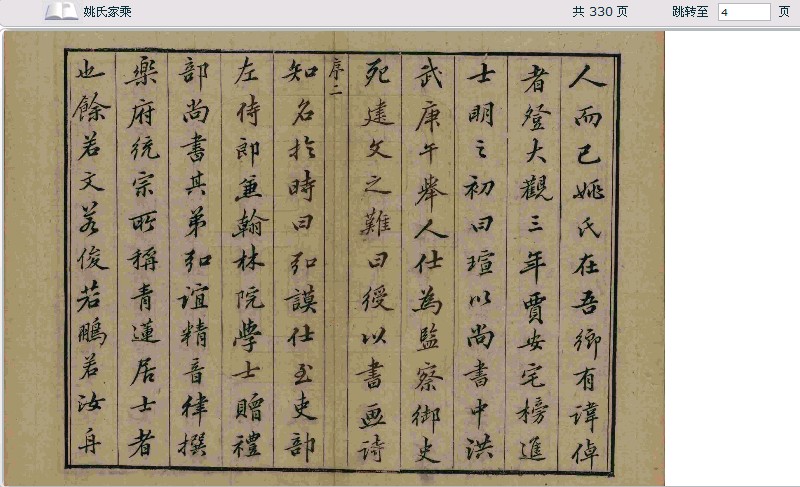 姚氏家乘
共 330 页
跳转至 4 页
人而已姚氏在吾鄉有諱倬
者登大觀三年賈安宅榜進
士明之初曰瑄以尚書中洪
武庚午舉人仕為監察御史
死建文之難曰綬以書畫詩
序二
知名於時曰弘謨仕至吏部
左侍郎兼翰林院學士贈禮
部尚書其弟弘誼精音律撰
樂府統宗所稱青蓮居士者
也餘若文若俊若鵬若汝舟